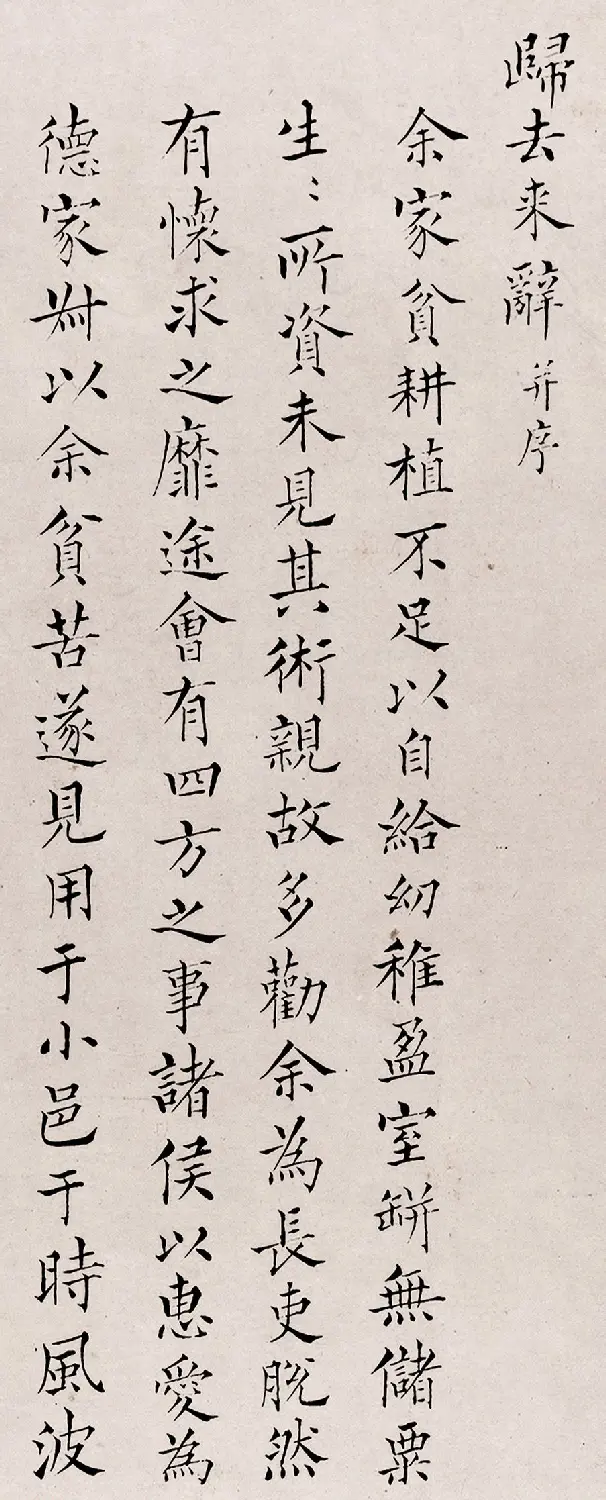 歸去来辭并序
余家貧耕植不足以自給幼稚盈室缾無儲粟
生〻所資未見其術親故多勸余為長吏脫然
有懷求之靡途會有四方之事諸侯以惠愛為
德家叔以余貧苦遂見用于小邑于時風波